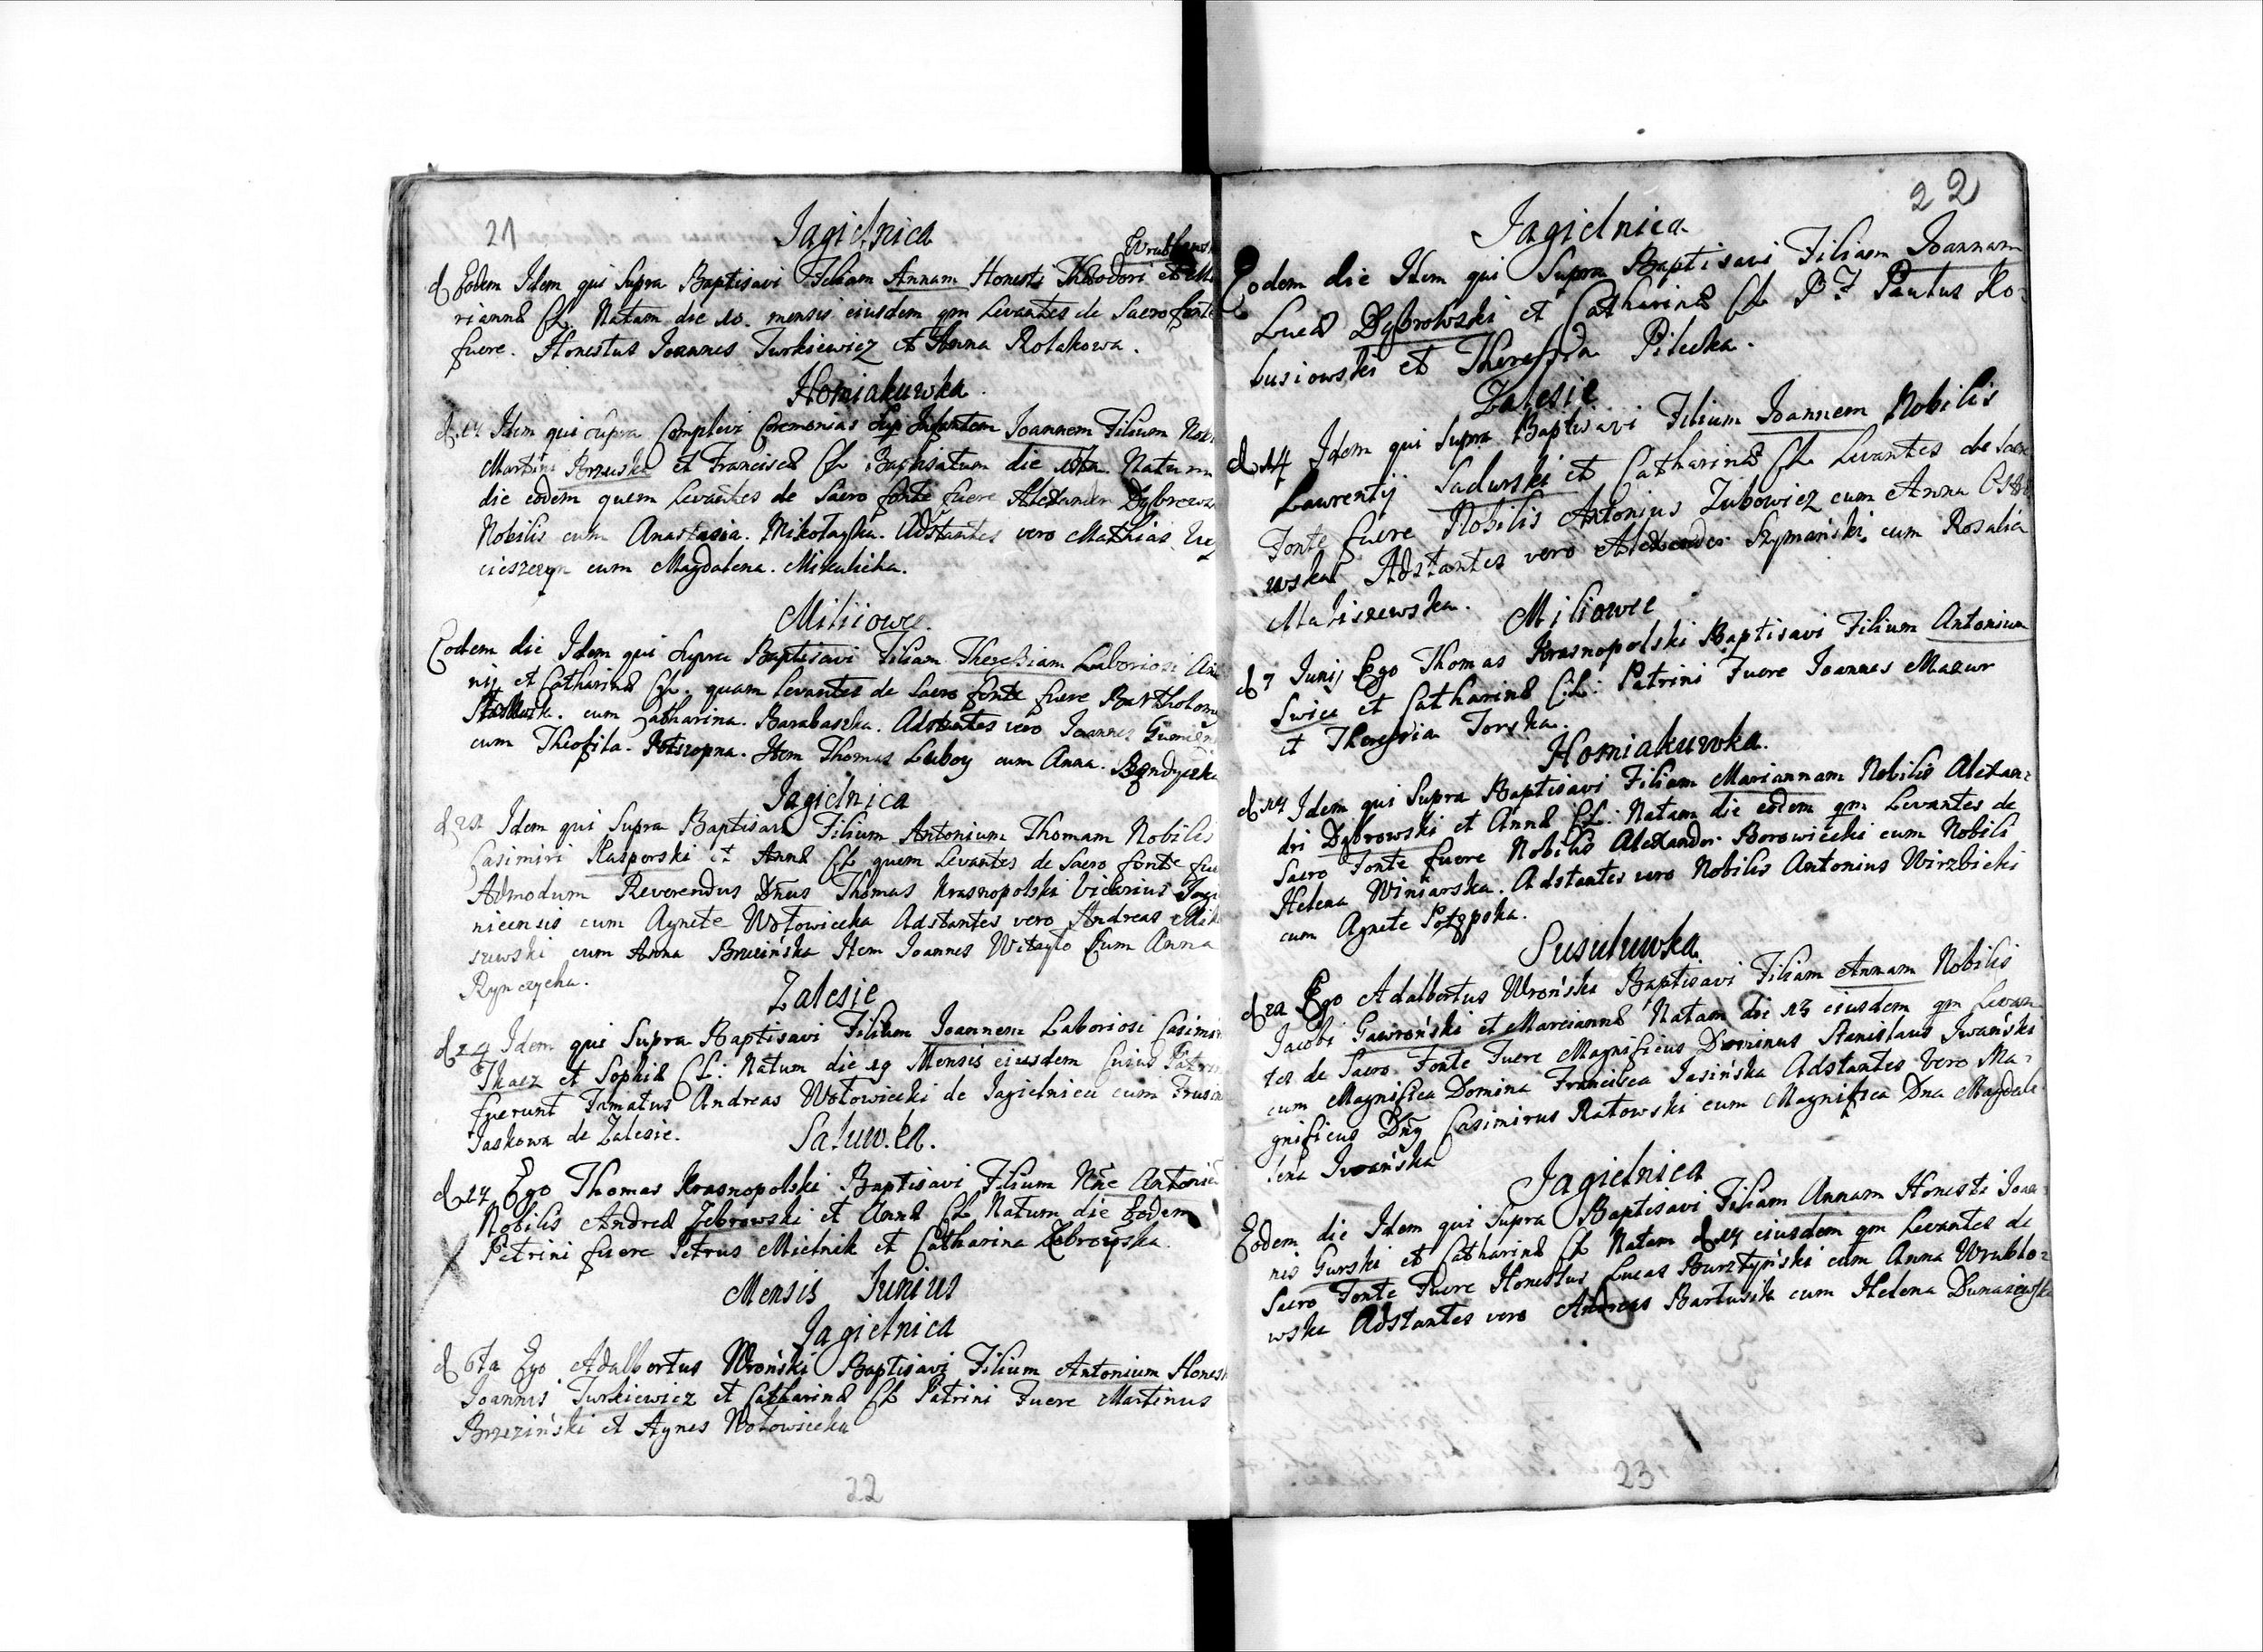 21
Jagielnica
d Eodem Idem qui Supra Baptisavi Filiam Annam Honesti Theodori et Ma
riannæ CL. Natam die 10. mensis eiusdem qm Levantes de Sacro fonte
fuere. Honestus Joannes Turkiewicz et Anna Rolakowa.
Homiakuwka.
Idem qui supra Complevi Ceremonias Sup Infantem Joannem Filium
Martini et Franciscæ CL Baptisatum die Natum
die eodem quem Levantes de Sacro fonte fuere Alexander Dąbrows
Nobilis cum Anastasia. Mikołayka. Adstantes vero Mathias
cieszczyn cum Magdalena. Mikulicka.
Miliiowce.
Eodem die Idem qui supra Baptisavi Filiam Theresiam Laboriosi An
nij et Catharinæ CL. quam Levantes de Sacro fonte fuere Bartholom
cum Catharina. Barabaszka. Adstantes vero Joannes
cum Theofila. Item Thomas Luboy cum Anna.
Jagielnica
d 21 Idem qui Supra Baptisavi Filium Antonium Thomam Nobilis
Casimiri Kasperski et Annæ CL quem Levantes de Sacro fonte fue
Admodum Reverendus Dnus Thomas Krasnopolski Vicarius Jagi
nicensis cum Agnete Wołowiecka Adstantes vero Andreas
szewski cum Anna Brzezińska Item Joannes cum Anna
Rynczycha.
Zalesie
Idem qui Supra Baptisavi Filium Joannem Laboriosi Casimiri
Tkacz et Sophiæ CL: Natum die 19 Mensis eiusdem Cuius Patrini
fuerunt Famatus Andreas Wołowiecki de Jagielnica cum
Jaskowa de Zalesie.
Saluw.ka.
d 27 Ego Thomas Krasnopolski Baptisavi Filium Nne Antoniu
Nobilis Andreæ Zebrowski et Annæ CL Natum die Eodem
Patrini fuere Petrus Mielnik et Catharina Zebrowska.
Mensis Junius
Jagielnica
d 6ta Ego Adalbertus Wroński Baptisavi Filium Antonium Hones
Joannis Turkiewicz et Catharinæ CL Patrini Fuere Martinus
Brzeziński et Agnes Wołowiecka
22
22
Jagielnica
Eodem die Idem qui Supra Baptisavi Filiam Joannam
Lucæ Dąbrowski et Catharinæ CL P F Paulus Ko=
busiowski et Theressia Pilecka.
Zalesie
d 14 Idem qui Supra Baptisavi Filium Joannem Nobilis
Laurentij Sadurski et Catharinæ CL Levantes de Sacro
Fonte fuere Nobilis Antonius Zubowicz cum Anna
wska Adstantes vero Alexander Szymański cum Rosalia
Maliszewska.
Miliowce
d 7 Junij Ego Thomas Krasnopolski Baptisavi Filium Antonium
Swica et Catharinæ C:L: Patrini Fuere Joannes Mazur
et Theressia Torska.
Homiakuwka.
d 17 Idem qui Supra Baptisavi Filiam Mariannam Nobilis Alexan=
dri Dąbrowski et Annæ CL: Natam die eodem qm Levantes de
Sacro Fonte fuere Nobilis Alexander Borowiecki cum Nobili
Helena Winiarska. Adstantes vero Nobilis Antonius Wirzbicki
cum Agnete
Susuluwka
d 22 Ego Adalbertus Wroński Baptisavi Filiam Annam Nobilis
Jacobi Gawroński et Marciannæ Natam die 13 eiusdem qm Levan
tes de Sacro Fonte Fuere Magnificus Dominus Stanislaus Iwański
cum Magnifica Domina Francisca Jasińska Adstantes Vero Ma=
gnificus Dnus Casimirus Ratowski cum Magnifica Dna Magdale
lena Iwańska
Jagielnica
Eodem die Idem qui Supra Baptisavi Filiam Annam Honesti Joan=
nis Gurski et Catharinæ CL Natam d 17 eiusdem qm Levantes de
Sacro Fonte Fuere Honestus Lucas Bursztyński cum Anna Wrublo=
wska Adstantes vero Andreas Bartusik cum Helena Dunaiewska
23